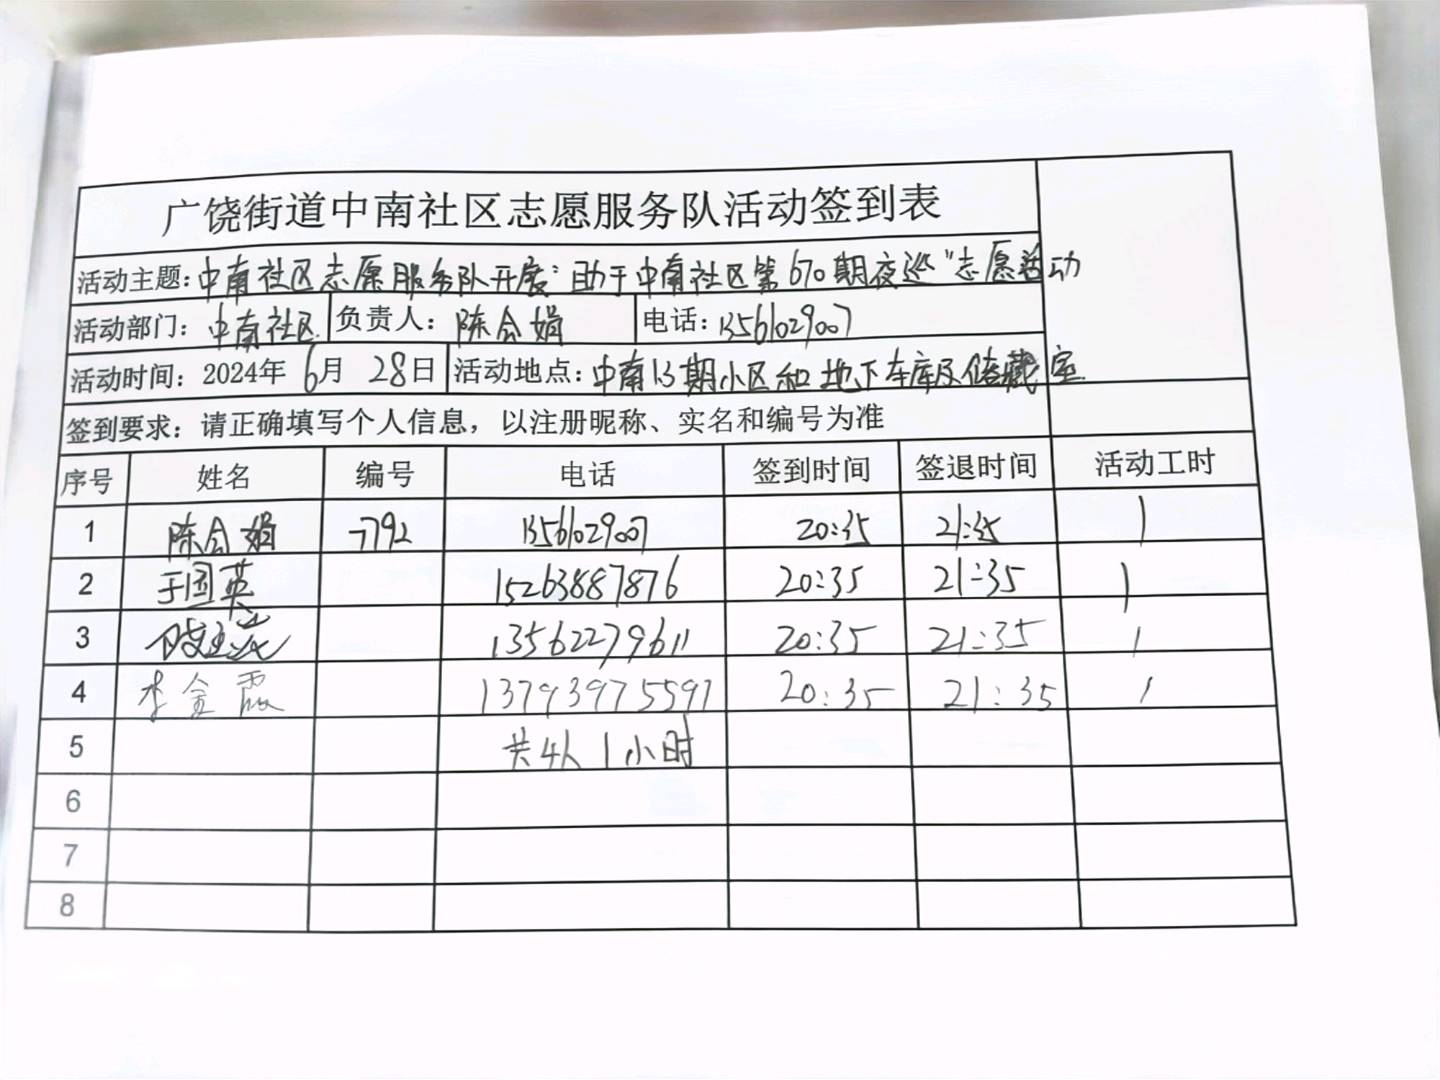 广饶街道中南社区志愿服务队活动签到表
活动主题：中南社区志愿服务队开展"助于中南社区第670期夜巡"志愿活动
活动部门：中南社区 负责人：陈会娟 电话：13561029007
活动时间：2024年 6月 28日 活动地点：中南1.3期小区和地下车库及储藏室
签到要求：请正确填写个人信息，以注册昵称、实名和编号为准
序号 姓名 编号 电话 签到时间 签退时间 活动工时
1 陈会娟 7792 13561029007 20:35 21:35 1
2 于国英 15263887876 20:35 21:35 1
3 13562279611 20:35 21:35 1
4 李金霞 13793975597 20:35 21:35 1
5 共4人 1小时
6
7
8